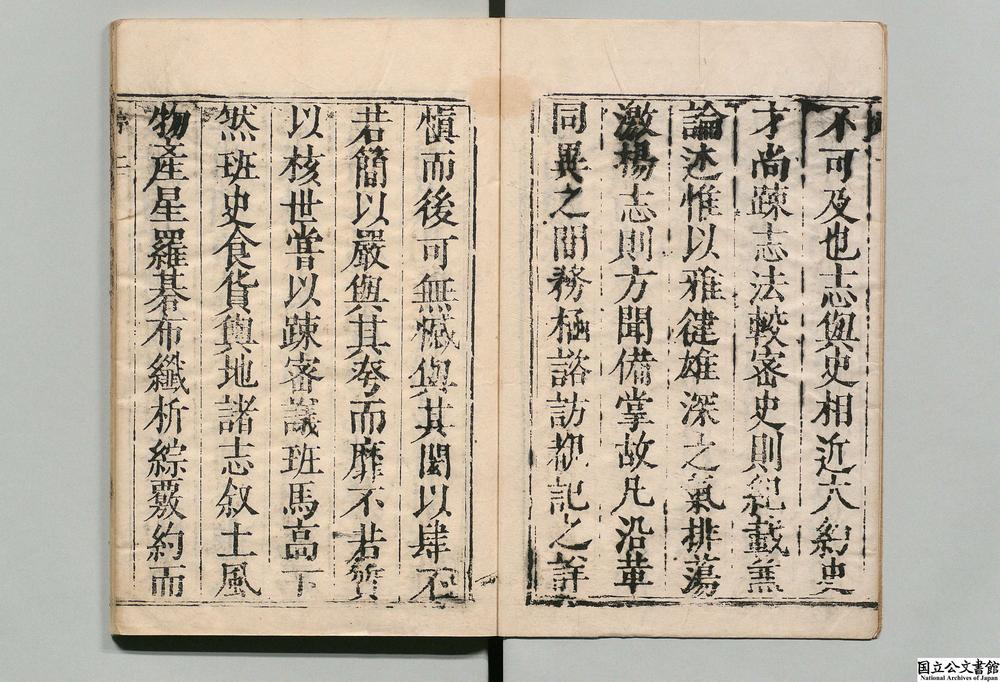 不可及也志與史相近大約史
才尚踈志法較密史則紀載兼
論述惟以雅健雄深之氣排蕩
激揚志則方聞備掌故凡沿革
同異之間務極諮訪覩記之詳
慎而後可無憾與其閎以肆不
若簡以嚴與其夸而靡不若質
以核世嘗以踈密議班馬高下
然班史食貨與地諸志叙土風
物產星羅碁布纖析綜覈約而
二
国立公文書館
National Archives of Japan